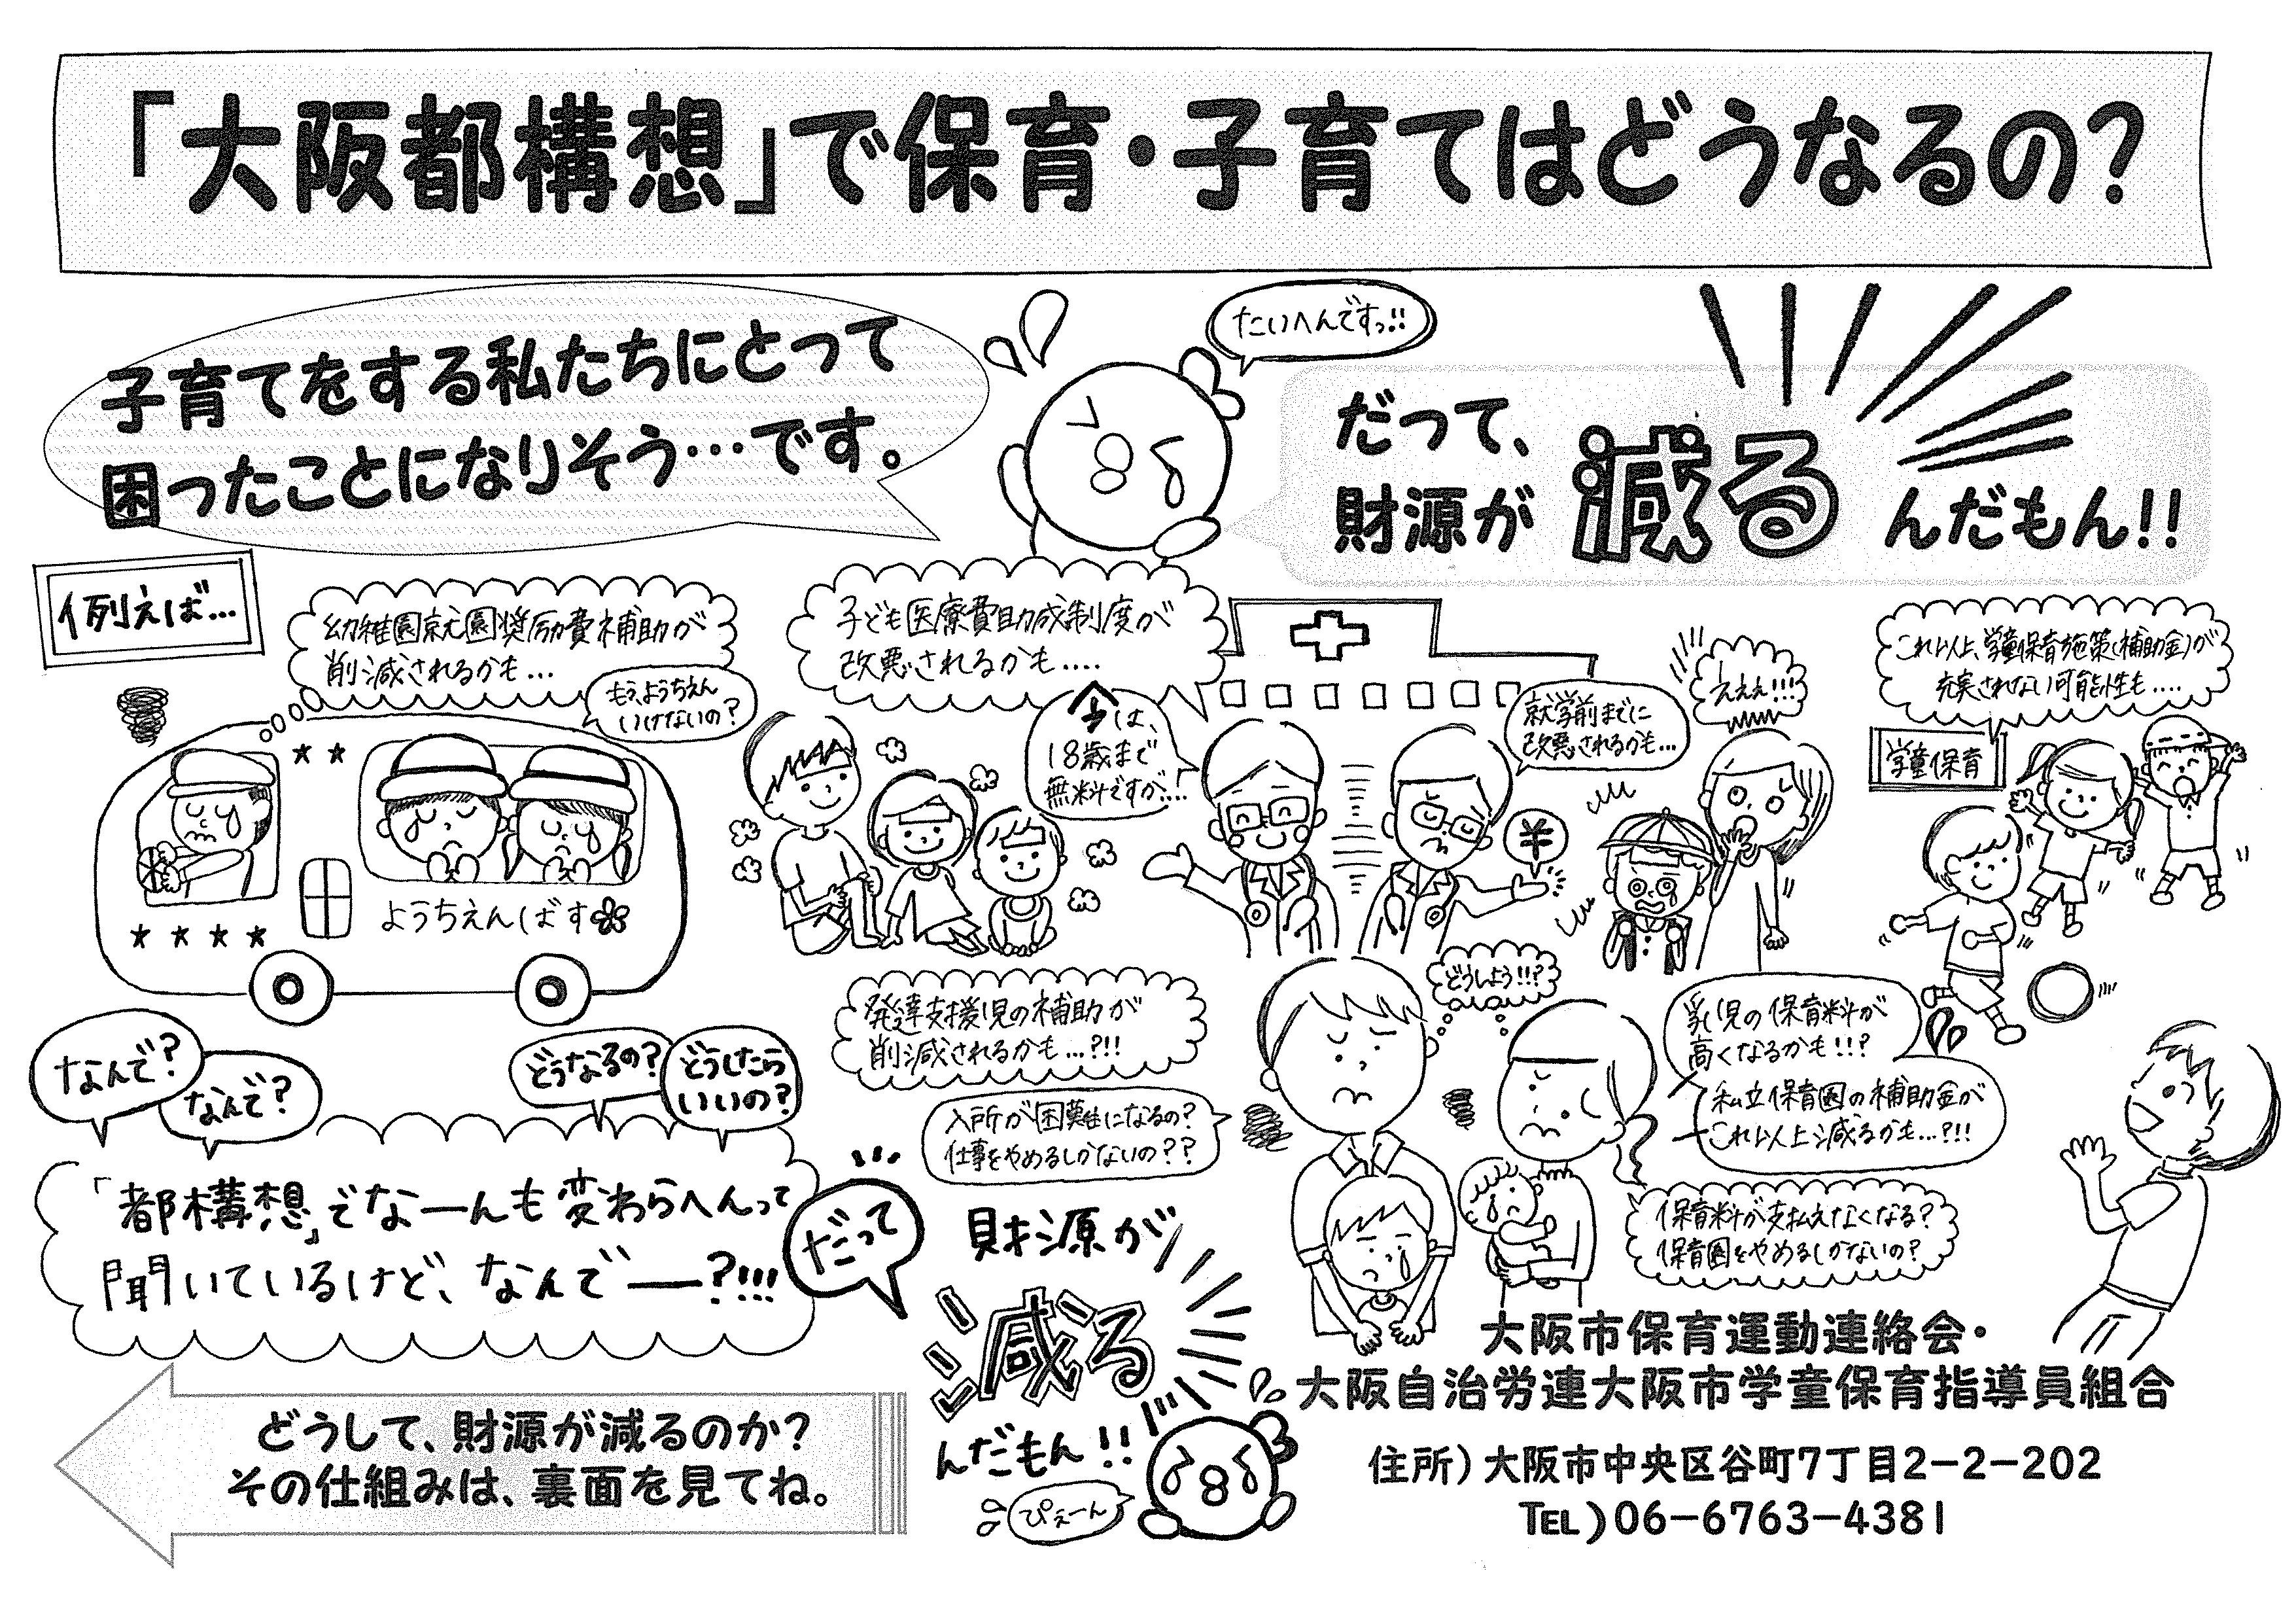 「大阪都構想」で保育・子育てはどうなるの？
子育てをする私たちにとって
困ったことになりそう…です。
たいへんですっ!!
だって、
財源が減るんだもん!!
例えば…
幼稚園就園奨励費補助が
削減されるかも…
もう、ようちえん
いけないの？
ようちえんばす
子ども医療費助成制度が
改悪されるかも....
今は、
18歳まで
無料ですが...!
就学前までに
改悪されるかも...
¥
ええぇ!!!
これ以上、学童保育施策(補助金)が
充実されない可能性も....
学童保育
なんで？
なんで？
どうなるの？
どうしたら
いいの？
「都構想」でなーんも変わらへんって
聞いているけど、なんでー?!!!
だって
財源が
減る
んだもん!!
ぴえーん
発達支援児の補助が
削減されるかも...?!!
入所が困難になるの？
仕事をやめるしかないの？？
どうしよう!!?
乳児の保育料が
高くなるかも!!?
私立保育園の補助金が
これ以上減るかも...?!!
保育料が支払えなくなる？
保育園をやめるしかないの？
どうして、財源が減るのか？
その仕組みは、裏面を見てね。
大阪市保育運動連絡会・
大阪自治労連大阪市学童保育指導員組合
住所）大阪市中央区谷町7丁目2－2－202
TEL）06－6763－4381